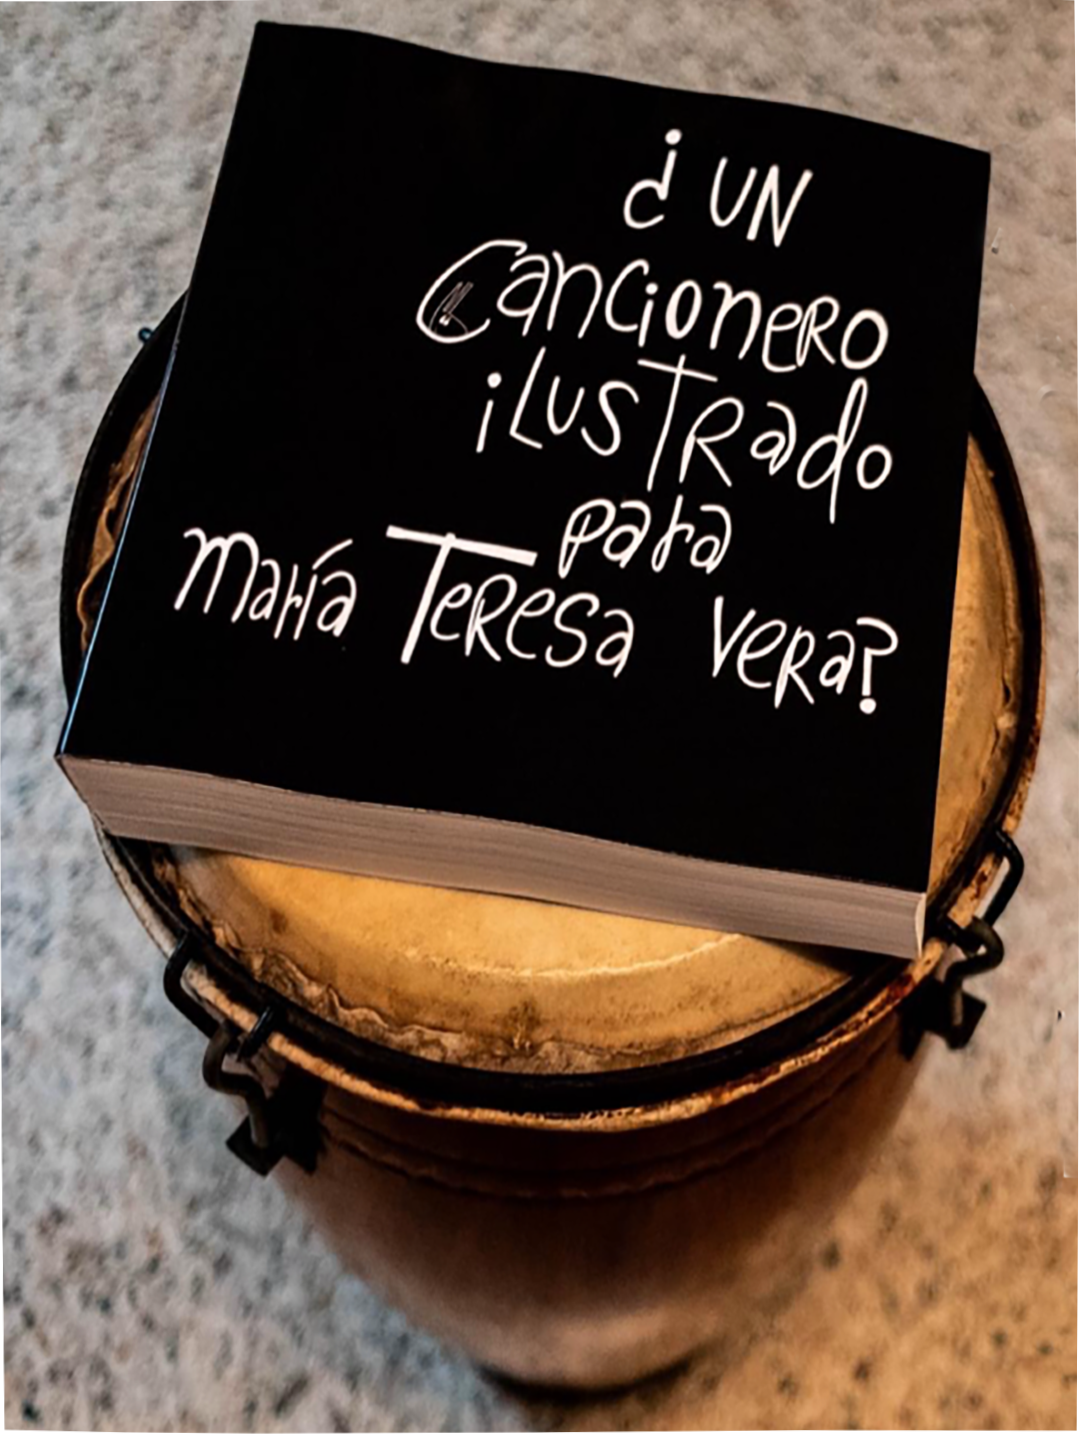 ¿UN
Cancionero
iLUSTRado
para
María TeResa VeRa?